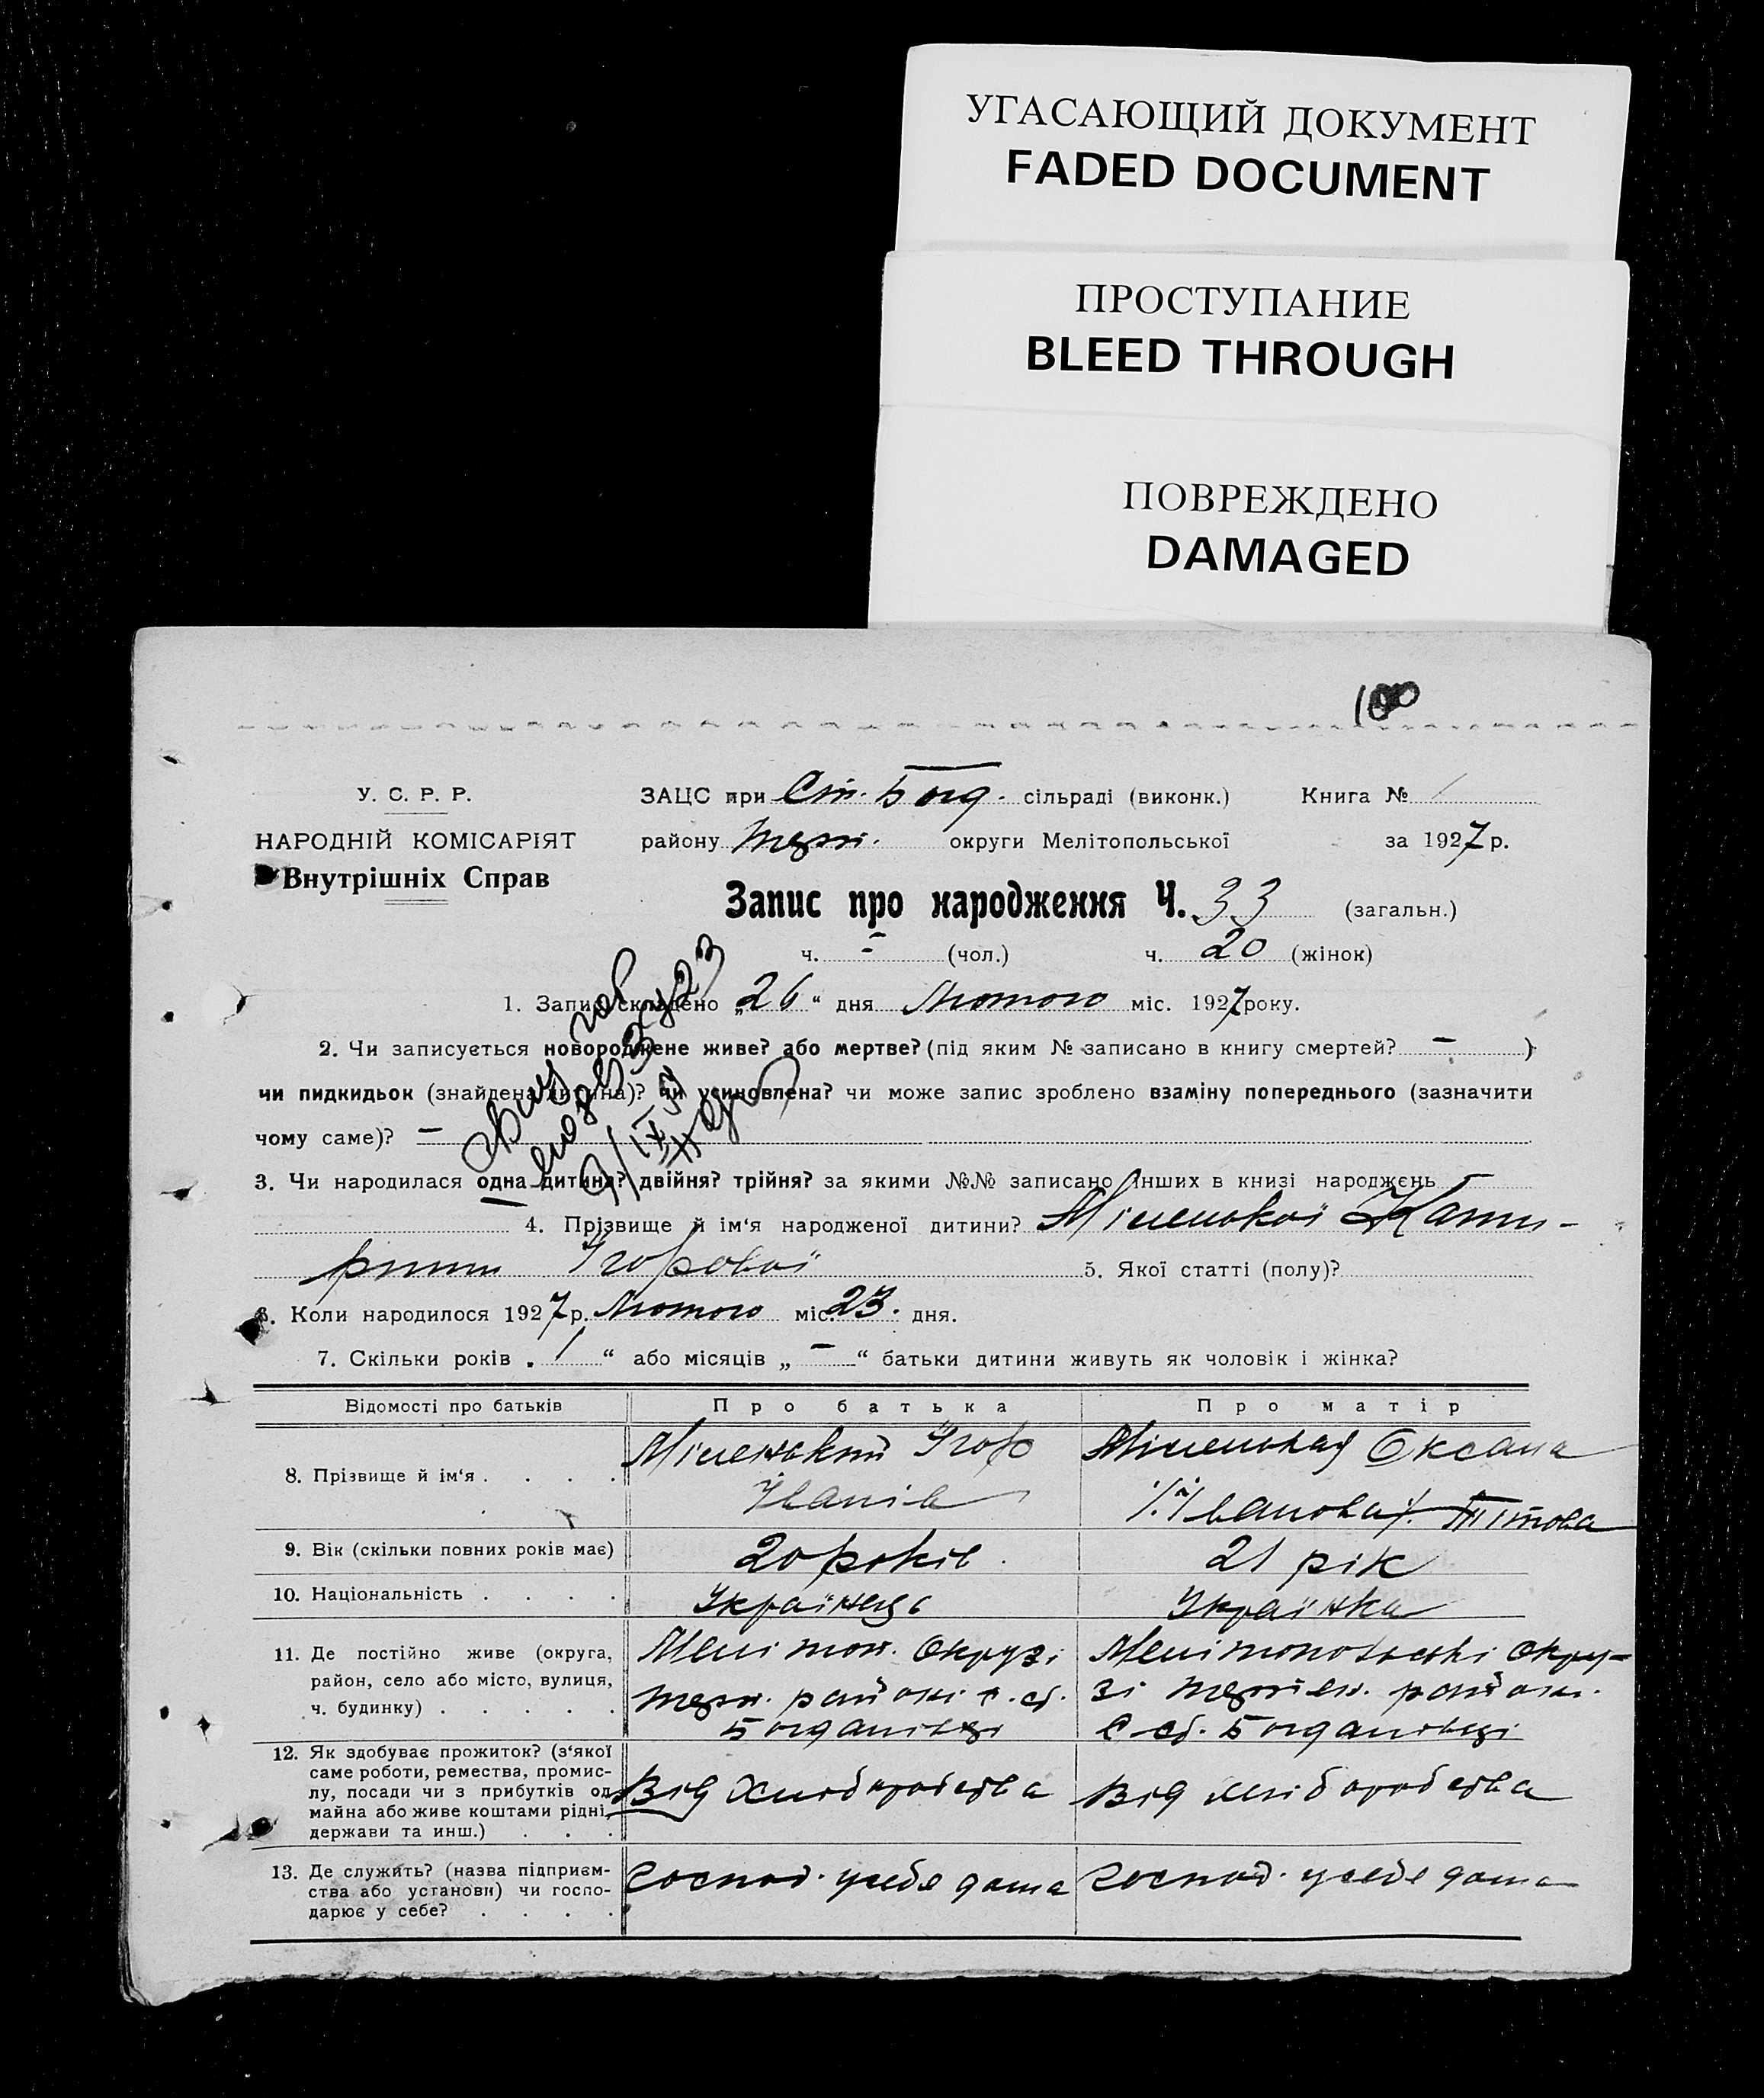 УГАСАЮЩИЙ ДОКУМЕНТ
FADED DOCUMENT
ПРОСТУПАНИЕ
BLEED THROUGH
ПОВРЕЖДЕНО
DAMAGED
У. С. Р. Р.
НАРОДНІЙ КОМІСАРІЯТ
Внутрішніх Справ
ЗАЦС при Ст. Богд. сільраді (виконк.) Книга № 1
району Терп. округи Мелітопольської за 1927 р.
Запис про народження Ч. 33 (загальн.)
ч. - (чол.) ч. 20 (жінок)
1. Запис складено „26“ дня Лютого міс. 1927 року.
2. Чи записується новороджене живе? або мертве? (під яким № записано в книгу смертей? — )
чи пидкидьок (знайдена дитина)? чи усиновлена? чи може запис зроблено взаміну попереднього (зазначити
чому саме)? —
3. Чи народилася одна дитина? двійня? трійня? за якими №№ записано інших в книзі народжень
4. Прізвище й ім‘я народженої дитини? Міленької Кати-
рини Ігорової 5. Якої статті (полу)?
6. Коли народилося 1927 р. Лютого міс. 23. дня.
7. Скільки років „1“ або місяців „—“ батьки дитини живуть як чоловік і жінка?
Відомості про батьків Про батька Про матір
8. Прізвище й ім‘я . . . . Міленький Ігор Іванів
Оксана Іванова Тітова
9. Вік (скільки повних років має) 20 років. 21 рік
10. Національність . . . . Українець Українка
11. Де постійно живе (округа,
район, село або місто, вулиця,
ч. будинку) . . . . .
Меліт. Округі
Терп. районі с. ст.
Богданівці
Мелітопольські Окру-
зі Терпен. районі.
с. ст. Богданівці
12. Як здобуває прожиток? (з‘якої
саме роботи, ремества, промис-
лу, посади чи з прибутків од
майна або живе коштами рідні,
держави та инш.) . . .
Від Хліборобства
Від хліборобства
13. Де служить? (назва підприєм-
ства або установи) чи госпо-
дарює у себе? . . . .
Господ. у себе дома
Господ. у себе дома